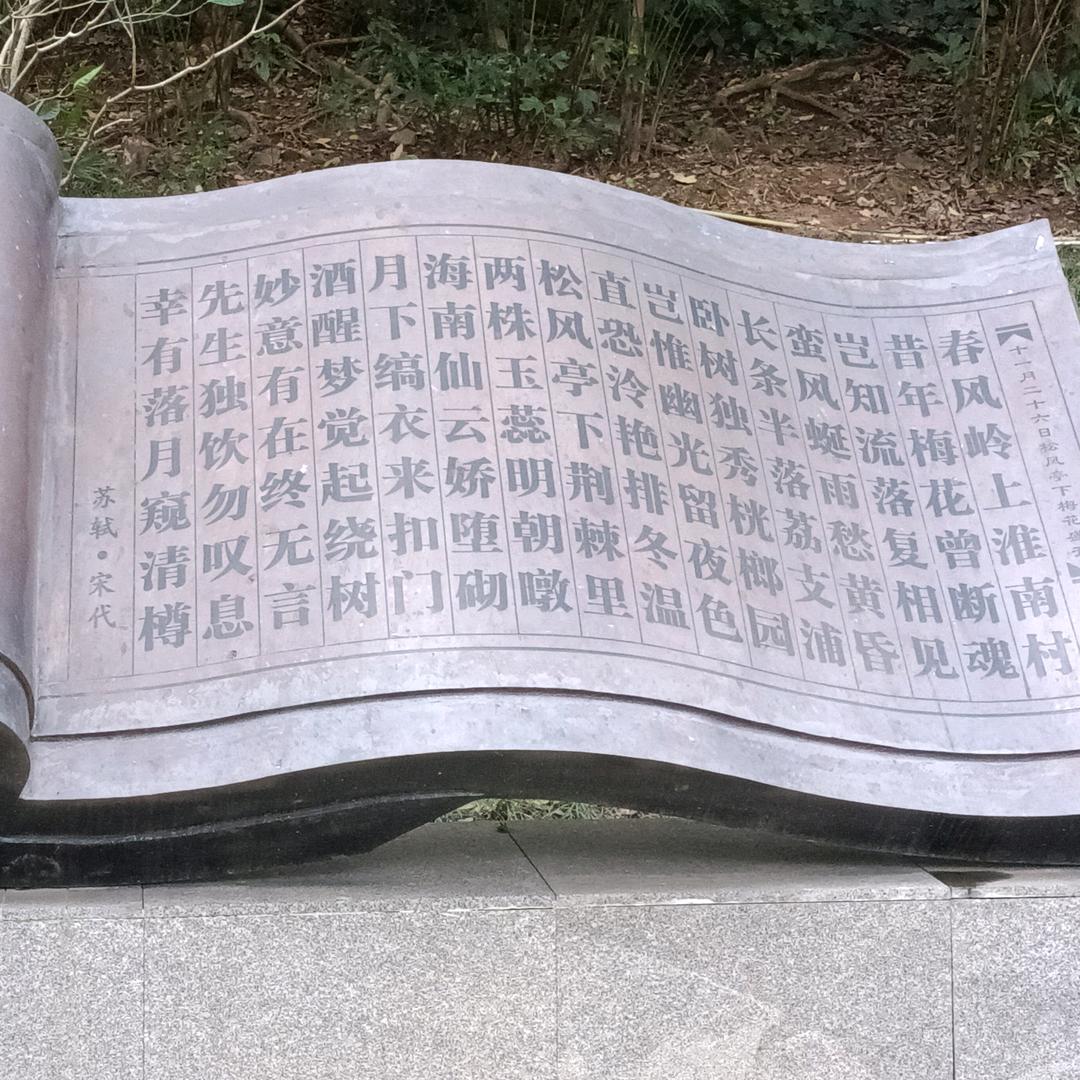 【十一月二十六日松风亭下梅花盛开】
春风岭上淮南村
昔年梅花曾断魂
岂知流落复相见
蛮风蜒雨愁黄昏
长条半落荔支浦
卧树独秀桄榔园
岂惟幽光留夜色
直恐冷艳排冬温
松风亭下荆棘里
两株玉蕊明朝暾
海南仙云娇堕砌
月下缟衣来扣门
酒醒梦觉起绕树
妙意有在终无言
先生独饮勿叹息
幸有落月窥清樽
苏轼•宋代